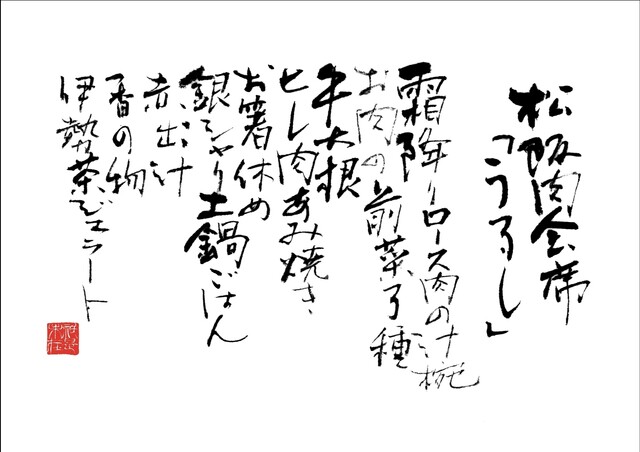 松阪肉会席
「うるし」
霜降りロース肉の汁椀
お肉の前菜3種
牛大根
ヒレ肉あみ焼き
お箸休め
銀シャリ土鍋ごはん
赤出汁
香の物
伊勢茶ジェラート